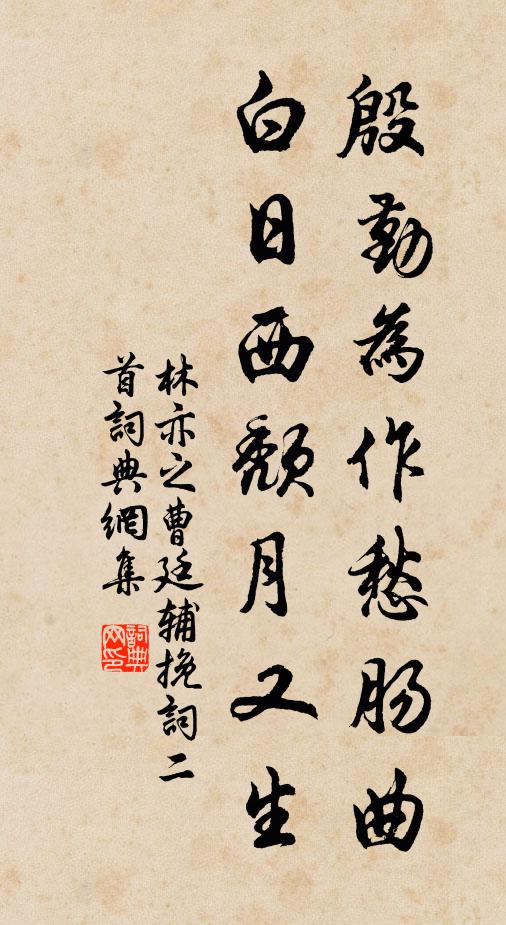 殷勤為作愁肠曲
白日西颓月又生
林亦之曹廷辅挽詞二
首詞典網集
詞典
网印